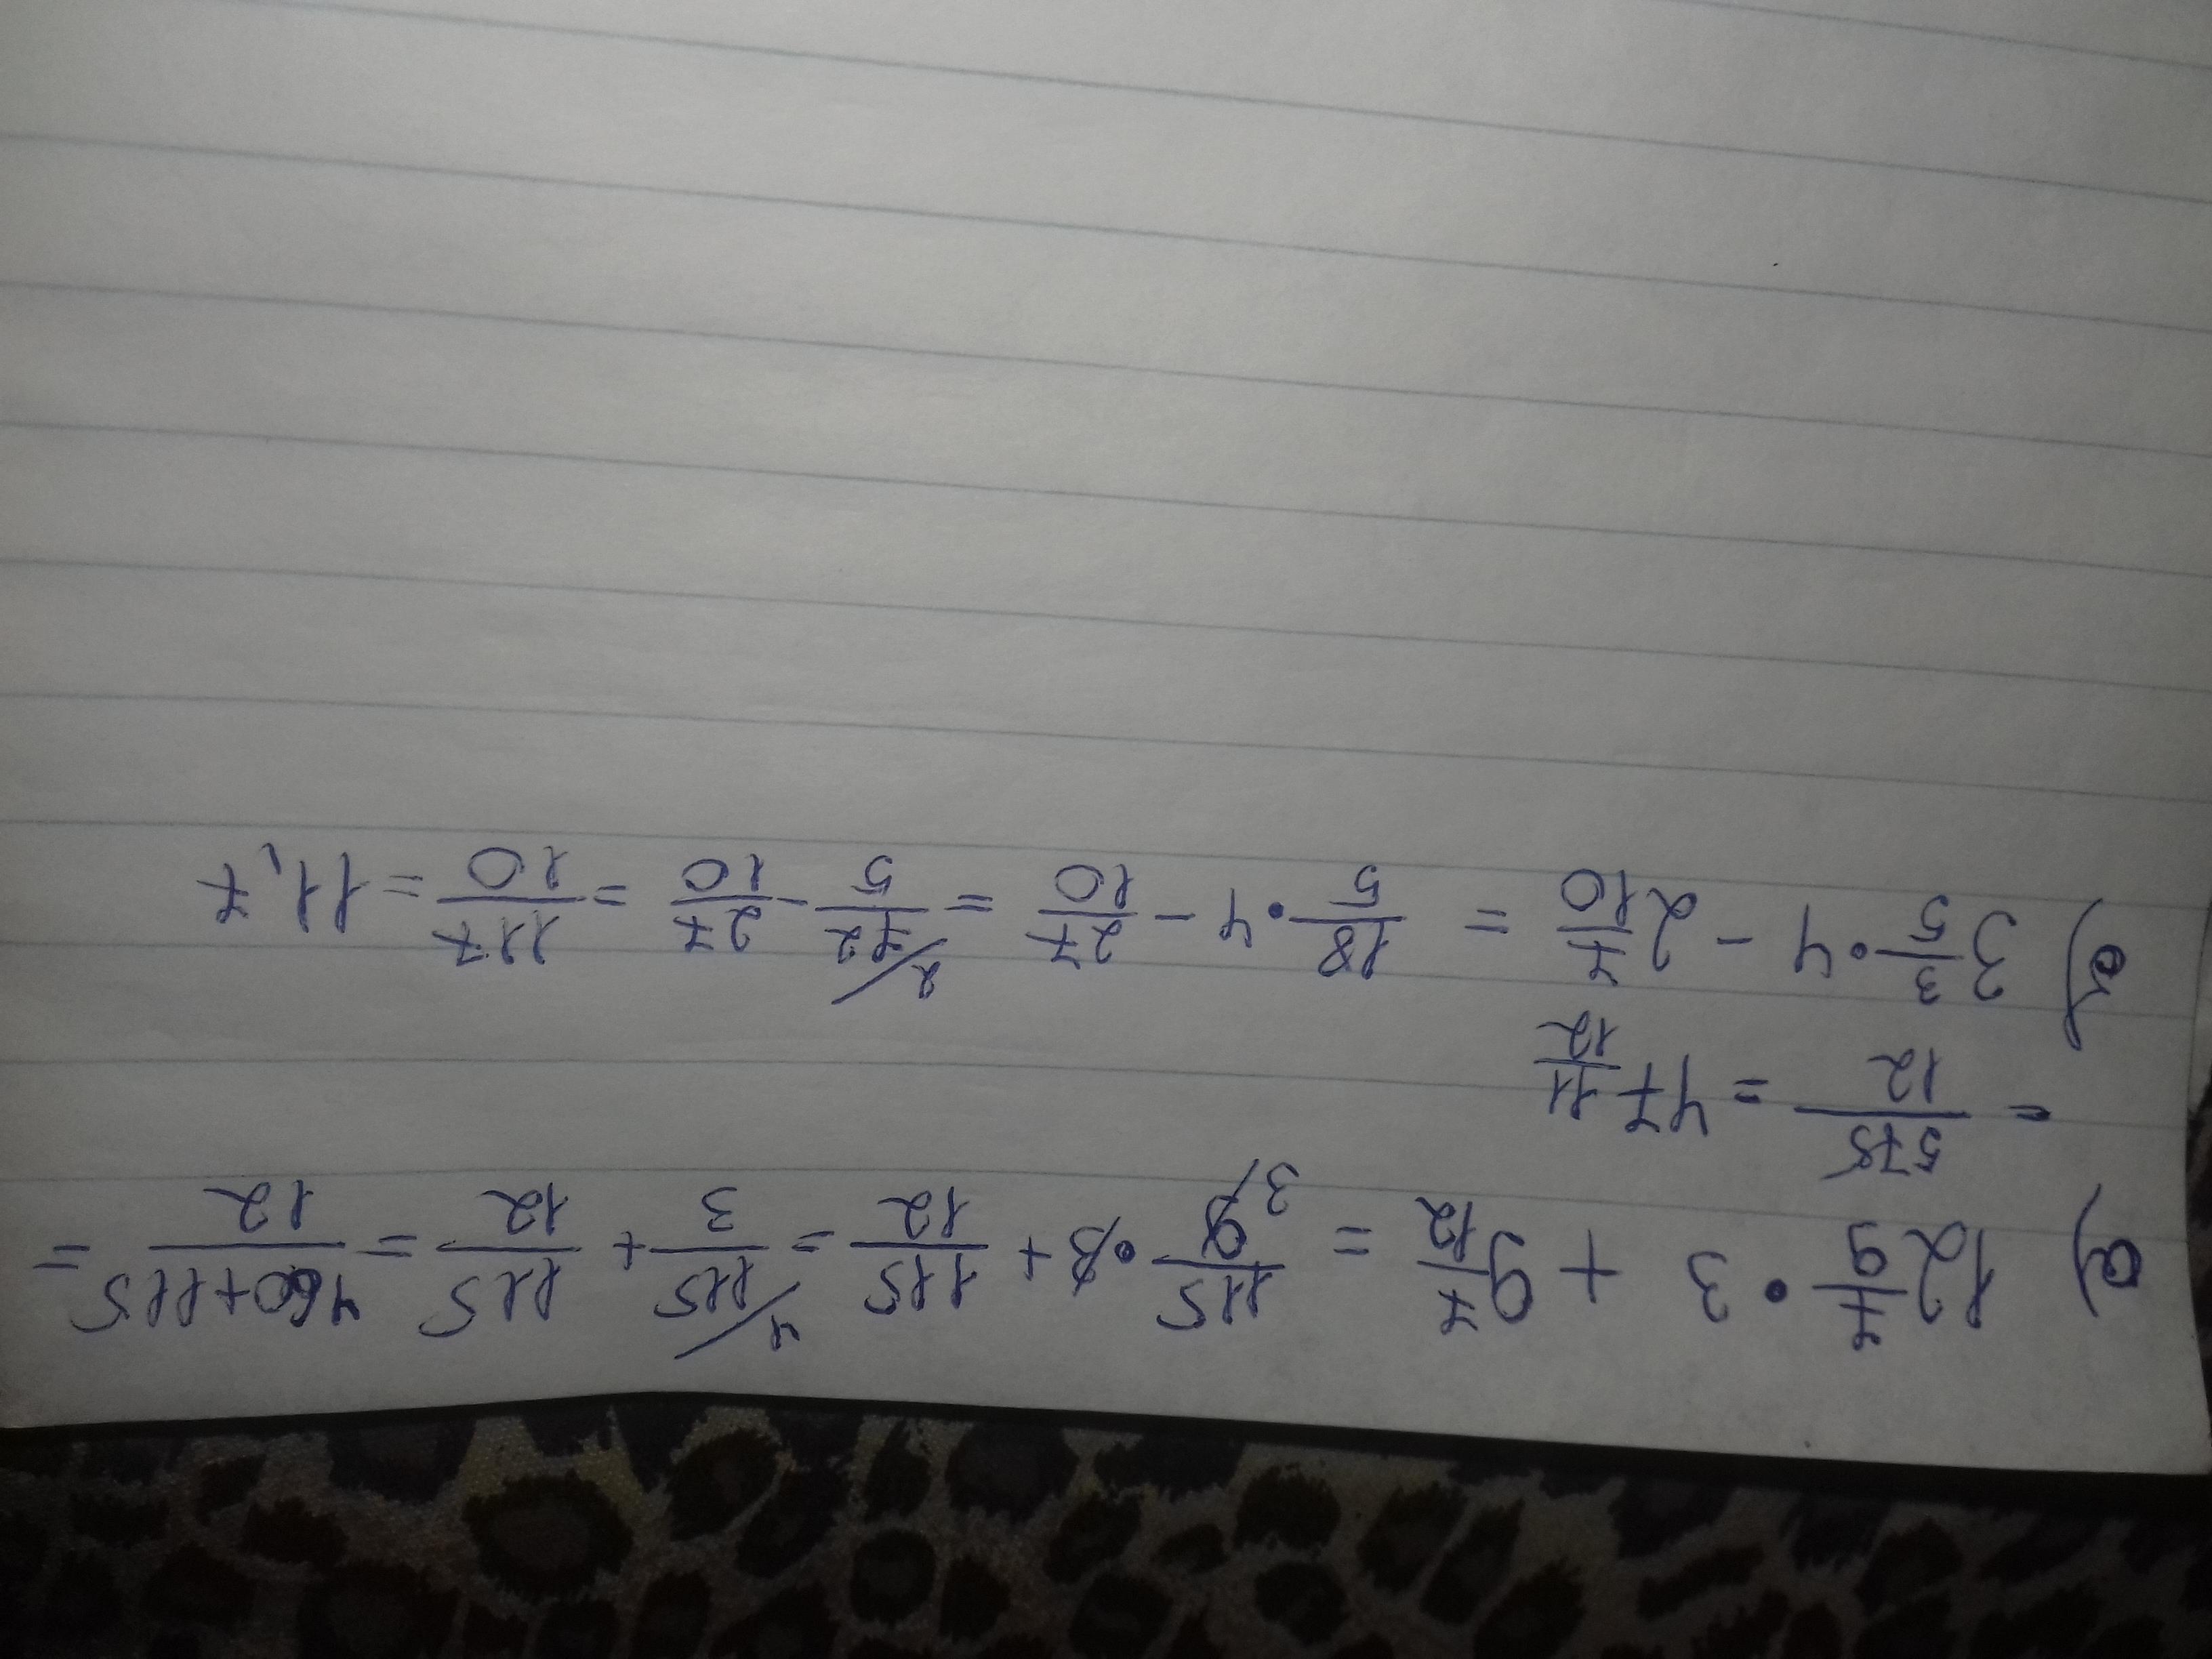 а) 12 7/9 • 3 + 9 7/12 = 115/9 3 • 3 + 115/12 = 115/3 /4 + 115/12 = 460+115/12 =
= 575/12 = 47 11/12
3 3/5 • 4 - 2 7/10 = 18/5 • 4 - 27/10 = 72/5 /2 - 27/10 = 117/10 = 11,7